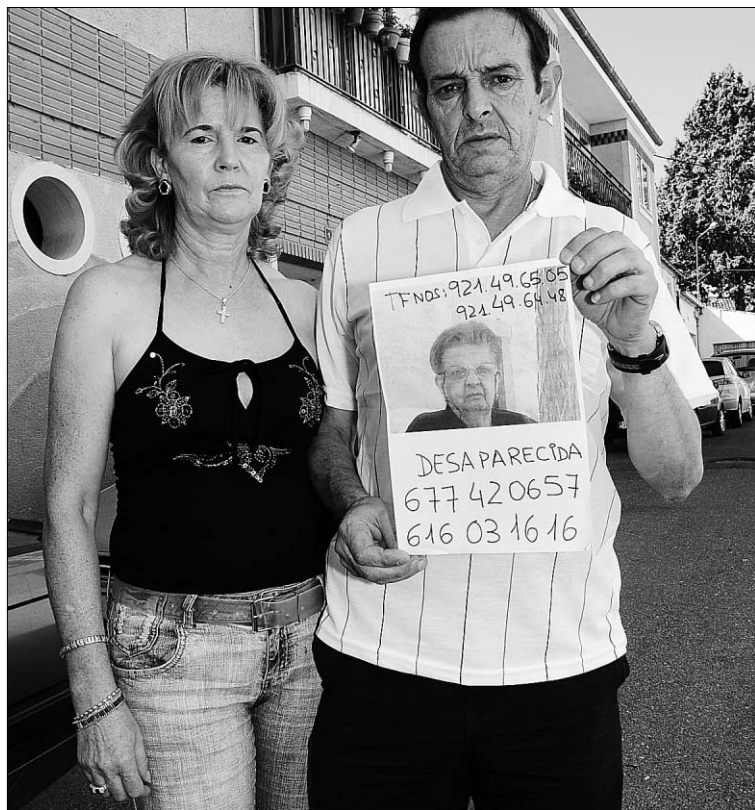 TFNOS: 921.49.65.05
921.49.64.48
DESAPARECIDA
677 420657
616 031616